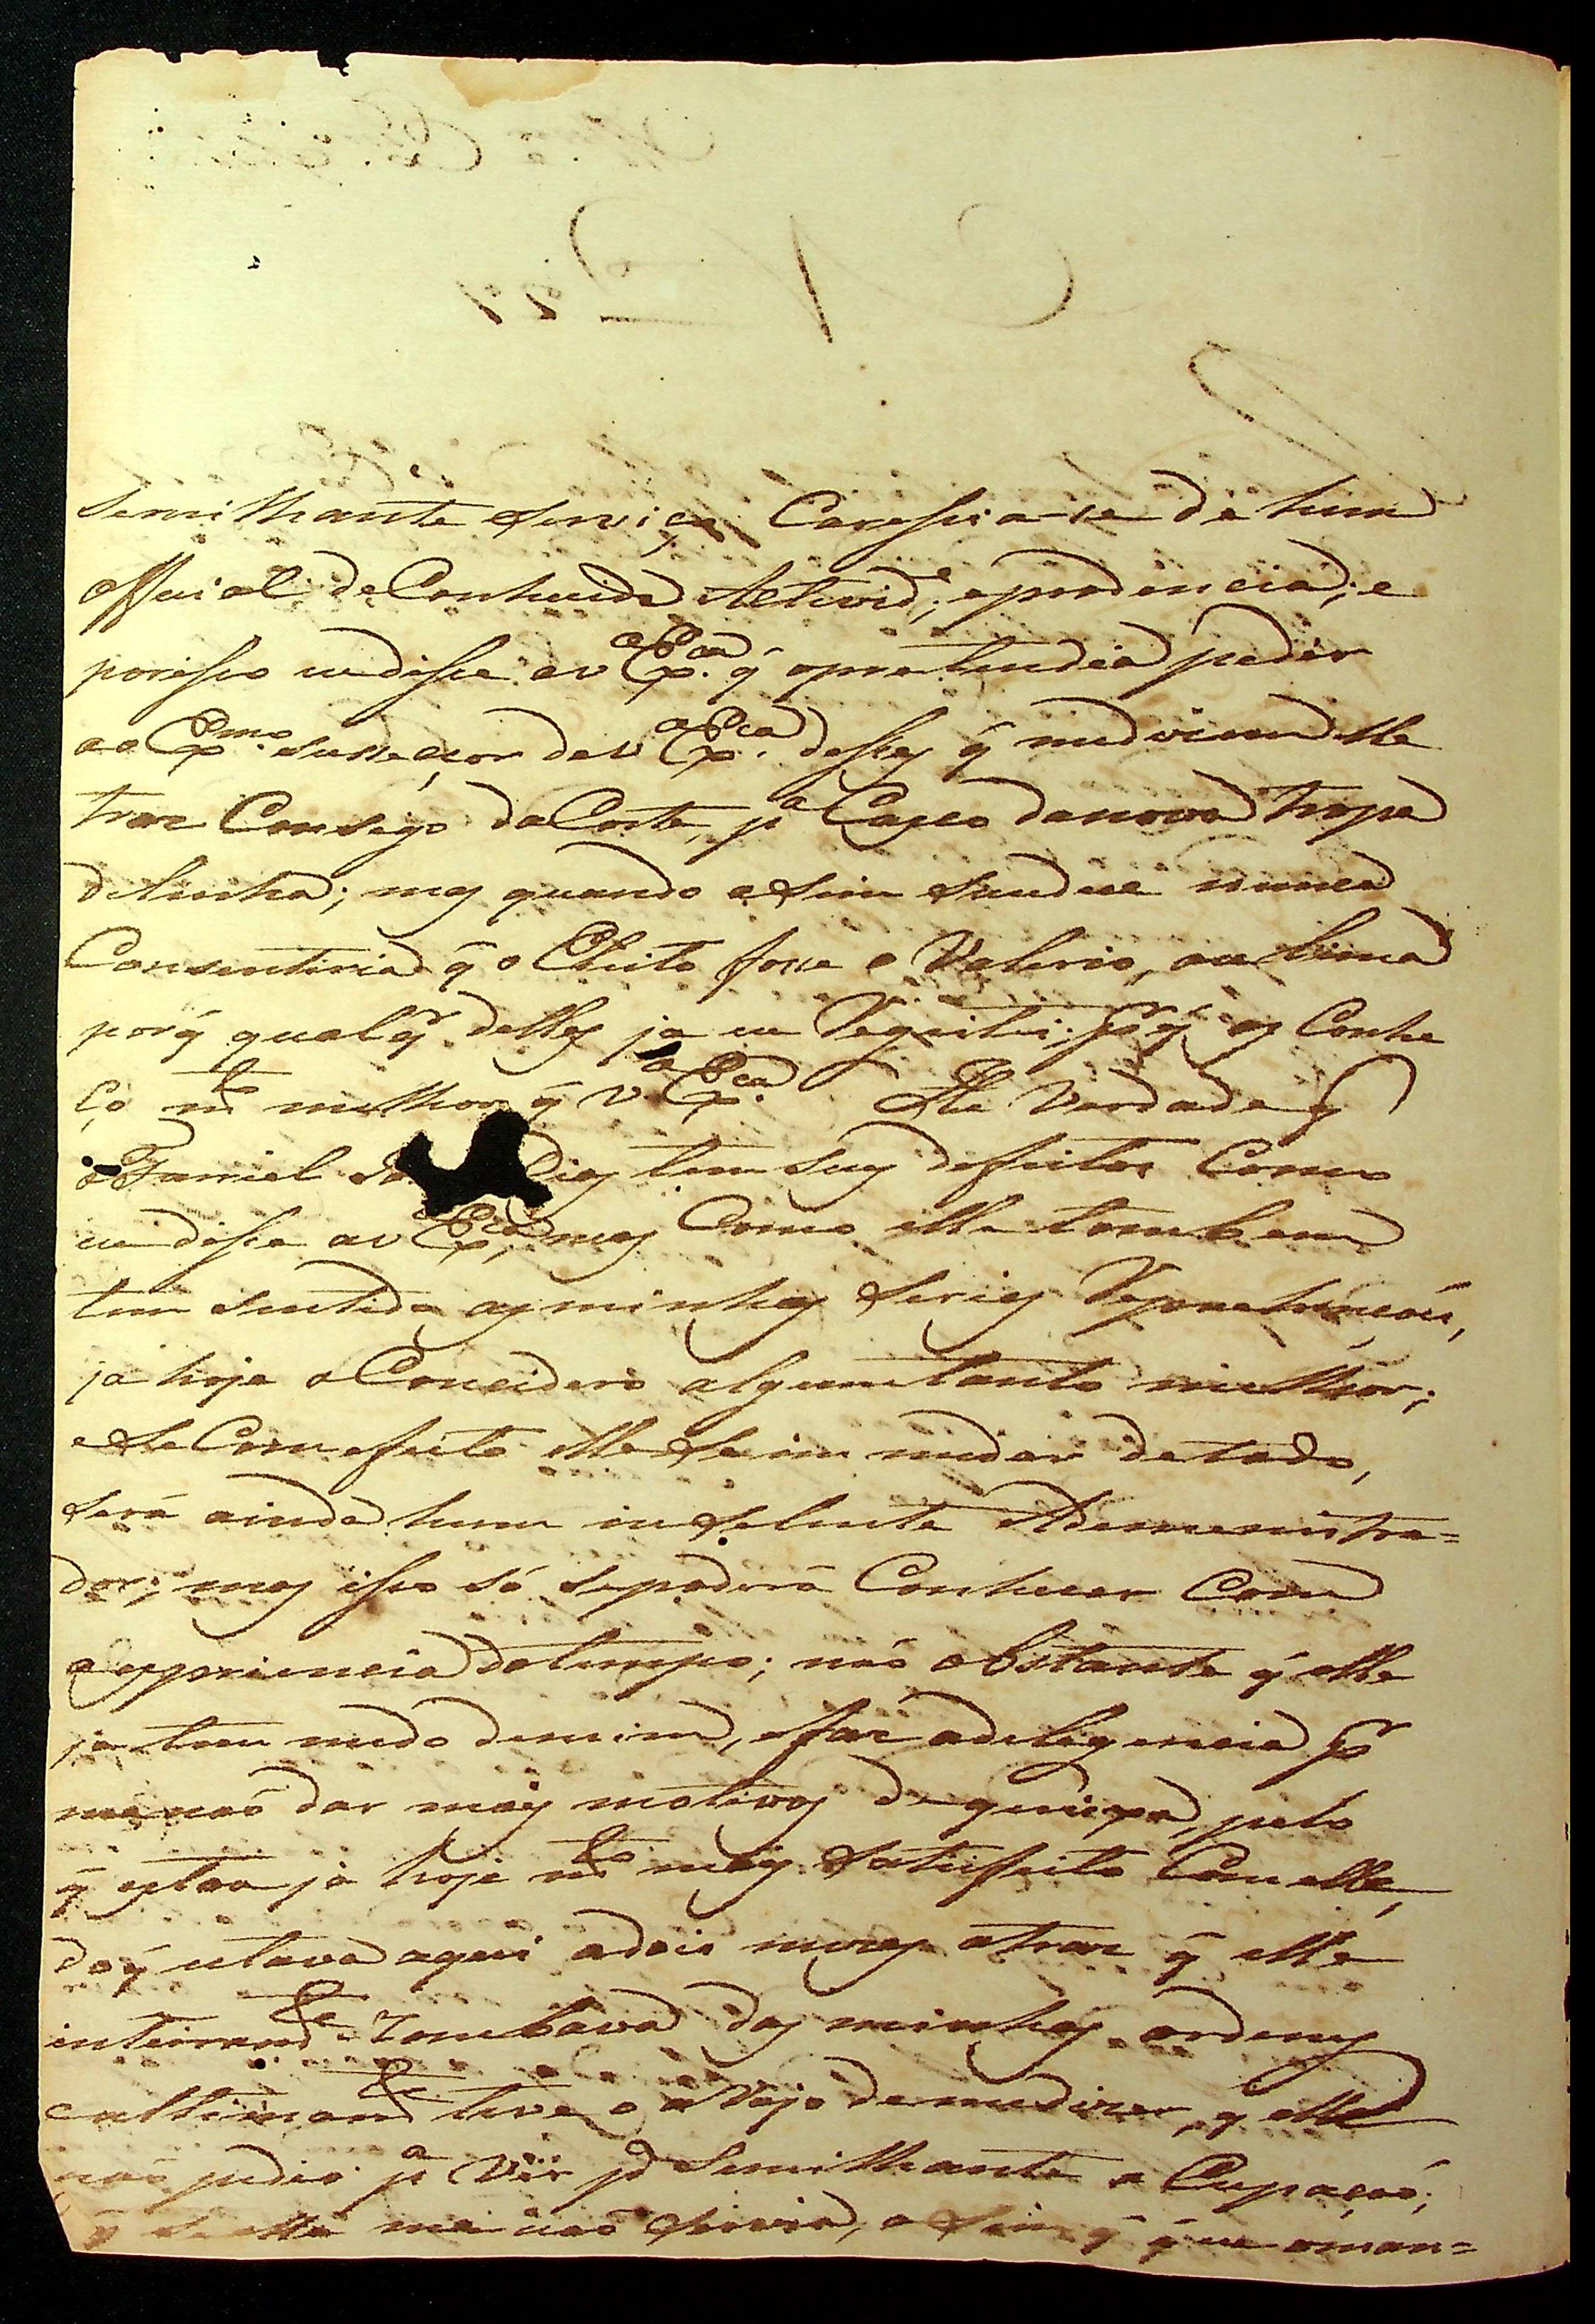 Semilhante Serviço. Caressia-se de hum
official de Conhecida Actevid.e, e prodencia; e
porisso eu disse a V Ex.ca q̃ opretendia pedir
ao Ex.mo Sussecçor de V Ex.ca desses q̃ mediceram elle
traz Consigo da Corte, p.a Cazco danova tropa
delinha; mas quando asim Sucdece nunca
Consentiria q̃ o Eleito fosse o Valerio, ou Lima
porq̃ qualq.r delles ja eu Regeitei; p.r q̃ os Conhe
ço m.to melhor q̃ V Ex.ca He Verdade q̃
o Furriel Dias tem Seus defeitos Como
eu disse a V Ex.ca, mas Como elle tambem
tem Sentido as minhas Serias Reprehençoes,
ja hoje o Concidero algumtanto milhor;
e Se Com efeito elle Se im mendar detodo,
Será ainda hum inSelente Ademenistra=
dor; mas isso só Sepoderá Conhecer Com
a experiencia dotempo; não obstante q̃ elle
ja tem medo demim, e faz adeligencia p.r
me não dar mais motivos de queixa, pelo
q̃ estou ja hoje m.to mais Satisfeito Com elle,
doq̃ estava aqui a dois mezes atraz q̃ elle
inteiram.te Zombava das minhas ordens
e ultimam.te teve o aRojo de me dizer, q̃ elle
não pedio p.a Vir p.a Semilhante o Cupação;
q̃ Se elle me não Servia, a Sim q̃ que oman=